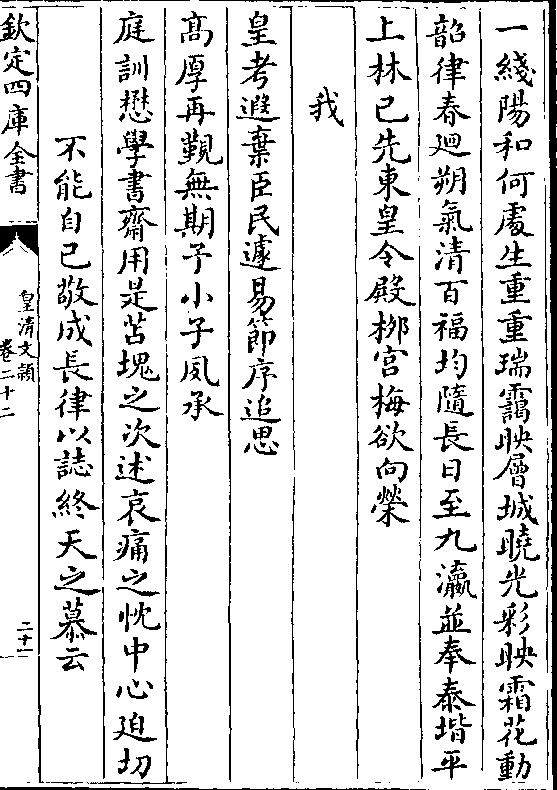 一綫陽和何處生重重瑞靄映層城曉光彩映霜花動
韶律春迴朔氣清百福均隨長日至九瀛並奉泰堦平
上林已先東皇令殿栁宫梅欲向榮
我
皇考遐棄臣民遽易節序追思
髙厚再覲無期予小子夙承
庭訓懋學書齋用是苫塊之次述哀痛之忱中心廹切
不能自已敬成長律以誌終天之慕云
欽定四庫全書
皇清文頴
卷二十二
二十一